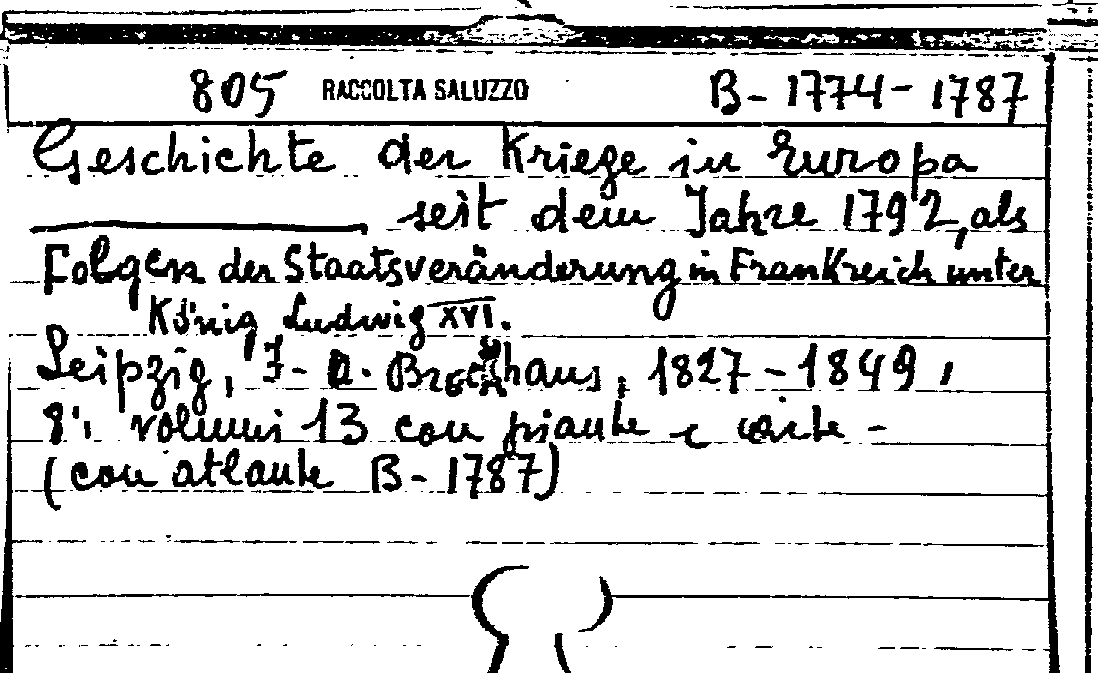 805 RACCOLTA SALUZZO B-1774-1787
Geschichte der Kriege in Europa
seit dem Jahre 1792, als
Folgen der Staatsveränderung in Frankreich unter
König Ludwig XVI.
Leipzig, F. A. Brockhaus, 1827-1849,
8°, volumi 13 con piante e carte -
(con atlante B-1787)